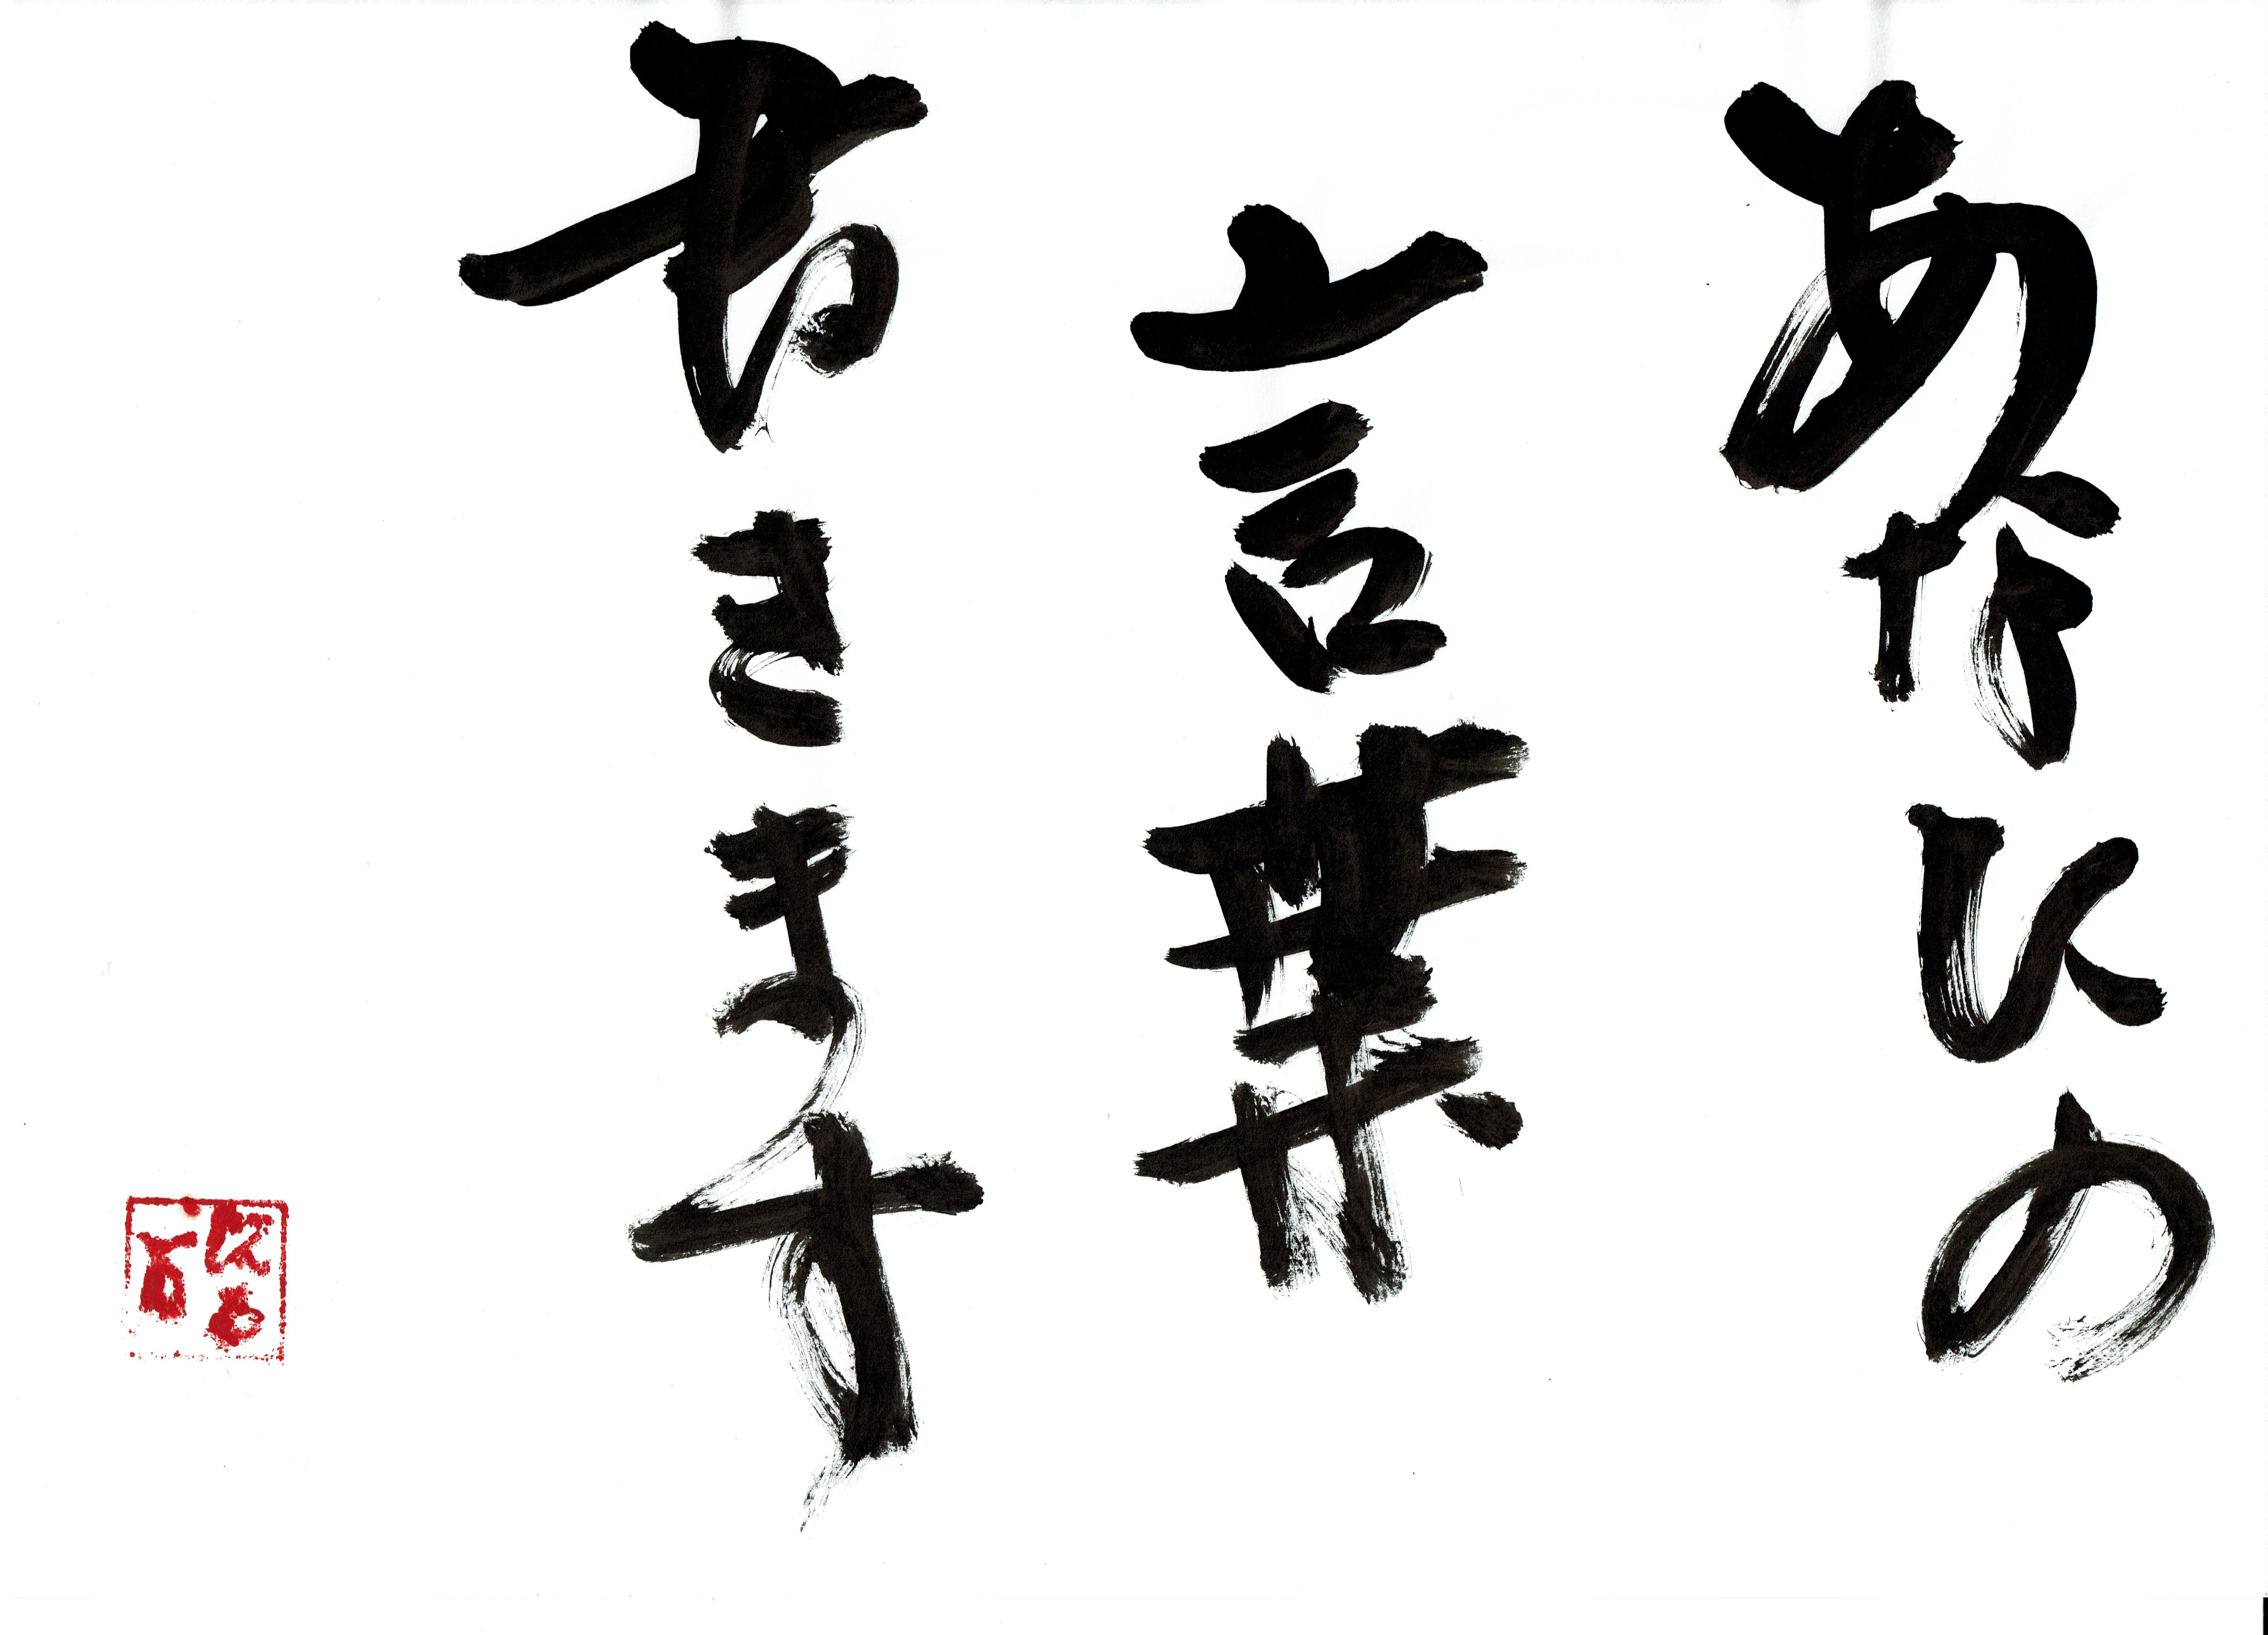 あなたの
言葉
書きます